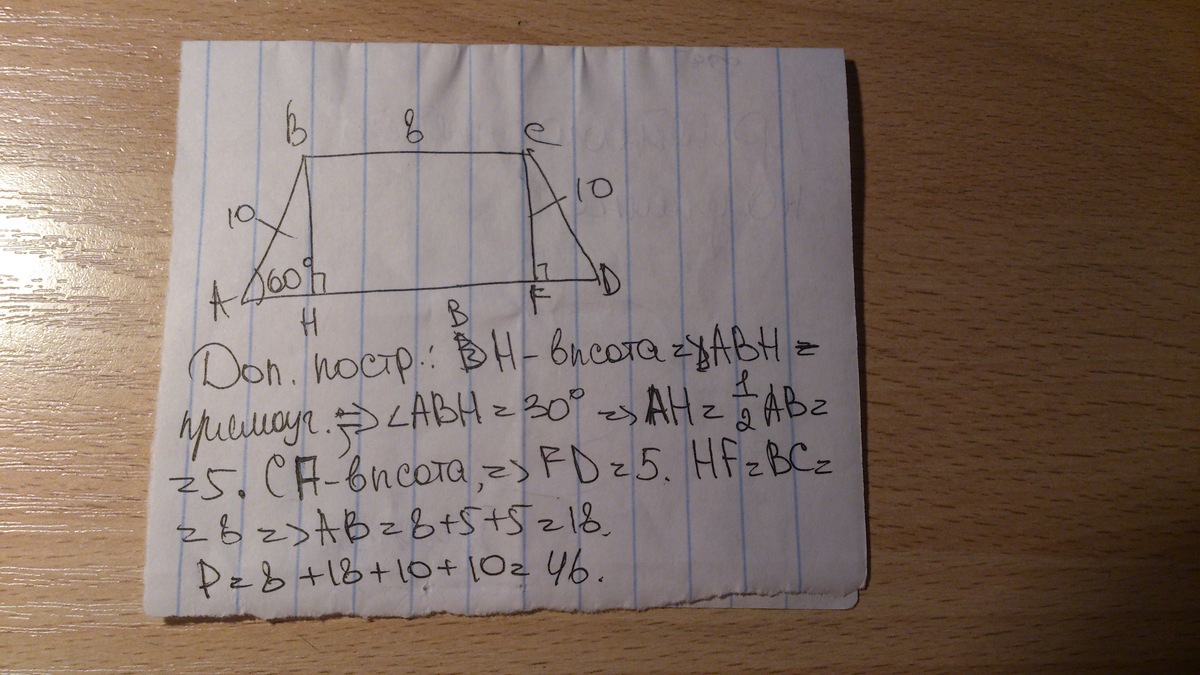 B 8 C
10 10
60°
A H F D
Доп. постр.: BH - высота => ABH =
прямоуг. => ∠ABH = 30° => AH = 1/2 AB =
= 5. CF - высота, => FD = 5. HF = BC =
= 8 => AB = 8 + 5 + 5 = 18.
P = 8 + 18 + 10 + 10 = 46.